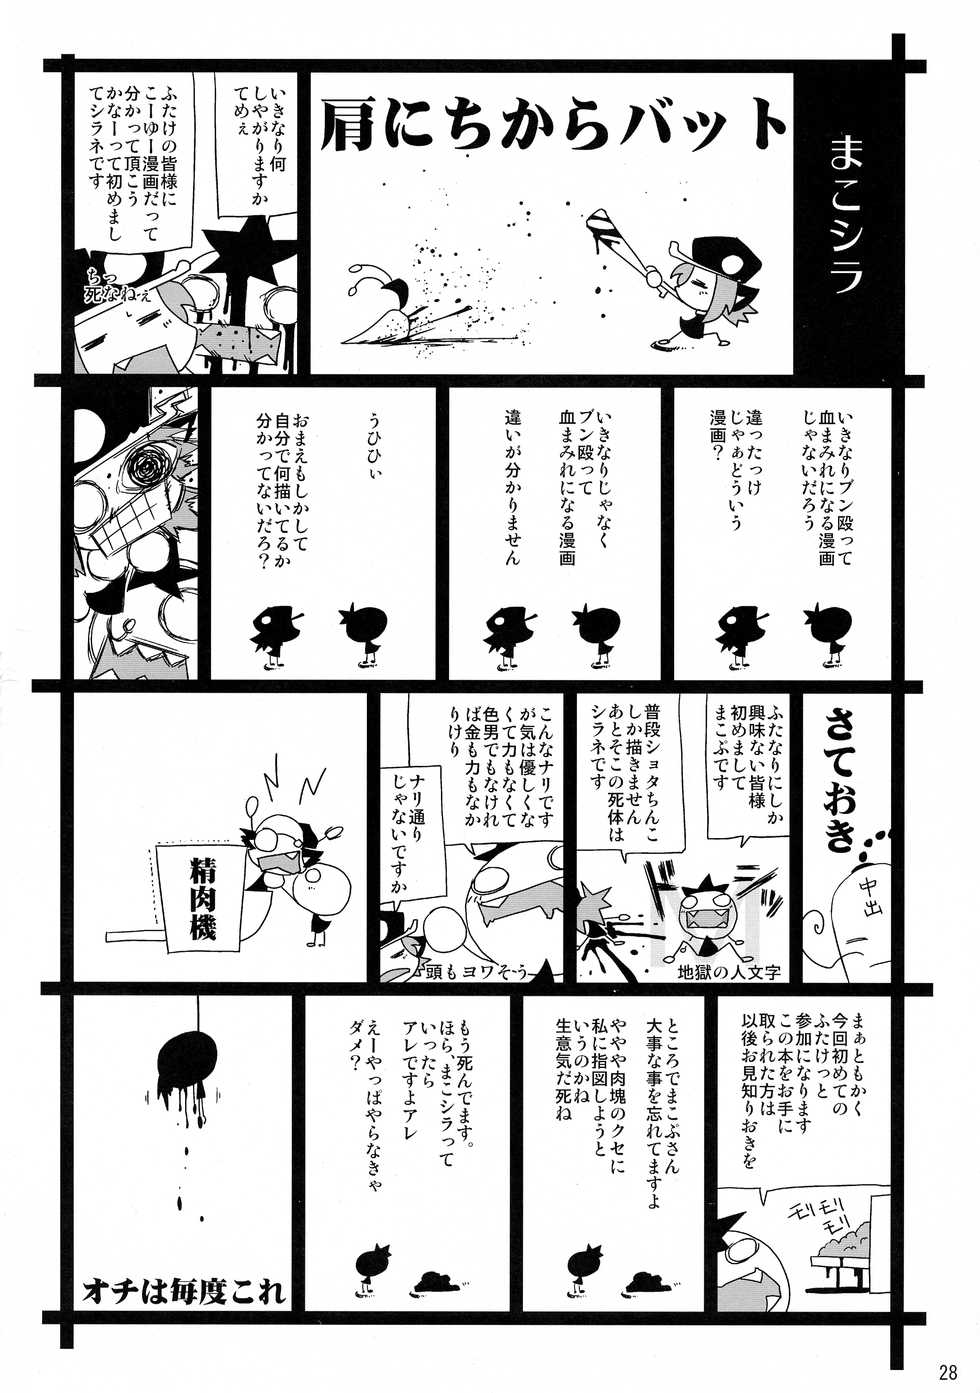 まこシラ
肩にちからバット
いきなり何
しやがりますか
てめぇ
ふたけの皆様に
こーゆー漫画だって
分かって頂こう
かなーって初めまし
てシラネです
ちっ
死なねぇ
いきなりブン殴って
血まみれになる漫画
じゃないだろう
違ったっけ
じゃぁどういう
漫画?
いきなりじゃなく
ブン殴って
血まみれになる漫画
違いが分かりません
うひひぃ
おまえもしかして
自分で何描いてるか
分かってないだろ?
さておき
中出
ふたなりにしか
興味ない皆様
初めまして
まこぷです
普段ショタちんこ
しか描きません
あとそこの死体は
シラネです
地獄の人文字
こんなナリです
が気は優しくな
くて力もなくて
色男でもなけれ
ば金も力もなか
りけり
ナリ通り
じゃないですか
頭もヨワそうー
精肉機
まぁともかく
今回初めての
ふたけっと
参加になります
この本をお手に
取られた方は
以後お見知りおきを
モリ
モリ
モリ
ところでまこぷさん
大事な事を忘れてますよ
やややや肉塊のクセに
私に指図しようと
いうのかね
生意気だ死ね
もう死んでます。
ほら、まこシラって
いったら
アレですよアレ
えーやっぱやらなきゃ
ダメ?
オチは毎度これ
28